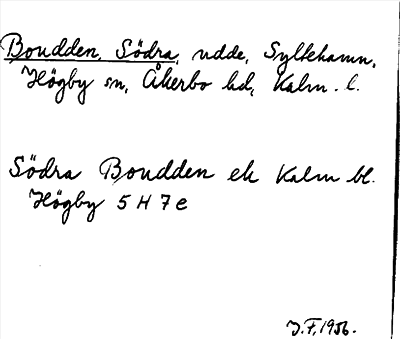 Boudden, Södra, udde, Syltehamn,
Högby sn, Åkerbo hd, Kalm. l.
Södra Boudden ek Kalm bl.
Högby 5 H 7 e
J.F. 1956.